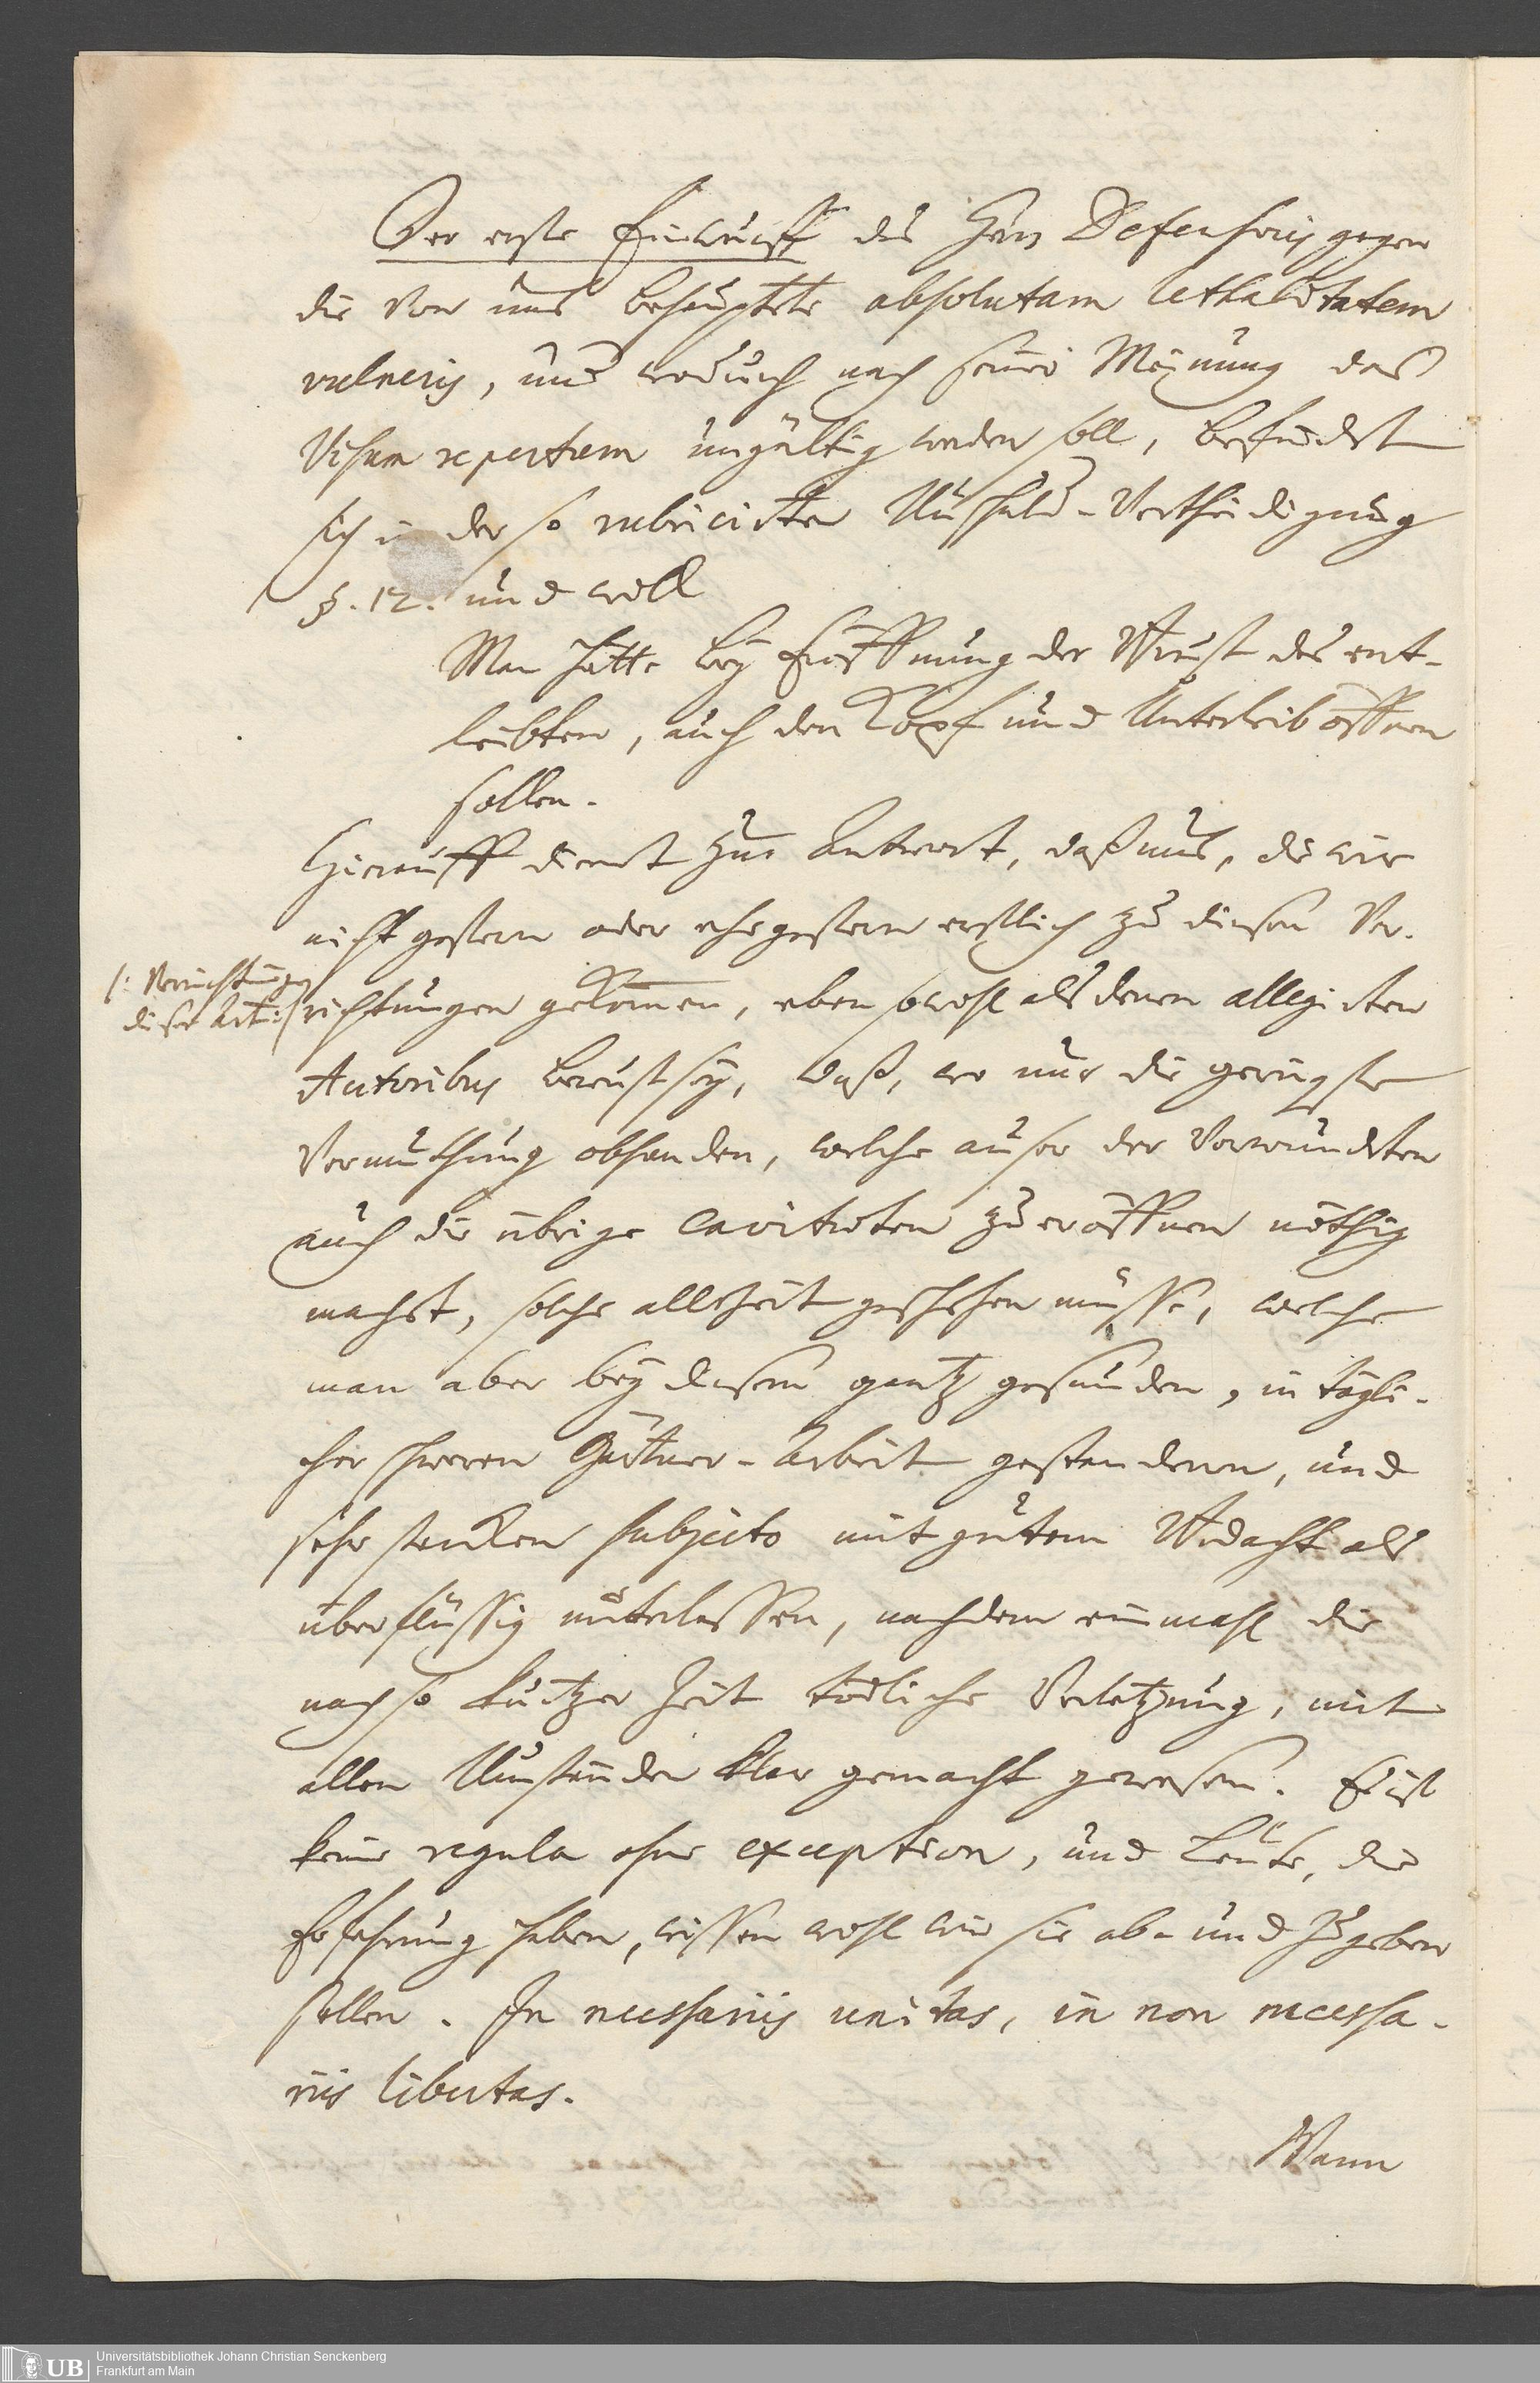 Der erste Einwurff des Herrn Defensoris gegen
die von uns behauptete absolutam lethalitatem
vulneris, und wodurch nach seiner Meynung das
Visum repertum ungültig werden soll, befindet
sich in der so rubricirten Unschuld-Vertheidigung
§. 12. und will
Man hätte bey Eröffnung der Brust des ent-
leibten, auch den Kopf und Unterleib öffnen
sollen.
Hierauff dient zur Antwort, daß uns, die wir
nicht gestern oder ehegestern erstlich zu diesen Ver-
/: Verrichtungen
dieser Art :/
richtungen gekommen, eben sowohl als denen allegirten
Autoribus bewust sey, daß, wo nur die geringste
Vermuthung obhanden, welche auser der verwundeten
auch die übrige Cavitæten zu eröffnen nöthig
machet, solches allezeit geschehen müsse, welches
man aber bey diesem gantz gesunden, in tägli-
cher schweren Gärtner-Arbeit gestandenen, und
sehr starcken subjecto mit gutem Bedacht als
überflüssig unterlassen, nachdem einmahl die
nach so kurtzer Zeit tödliche Verletzung, mit
allen Umständen klar gemacht gewesen. Es ist
keine regula ohne exception, und Leute, die
Erfahrung haben, wissen wohl wie sie ab- und zugeben
sollen. In necessariis unitas, in non necessa-
riis libertas.
Wann
Universitätsbibliothek Johann Christian Senckenberg
Frankfurt am Main
UB